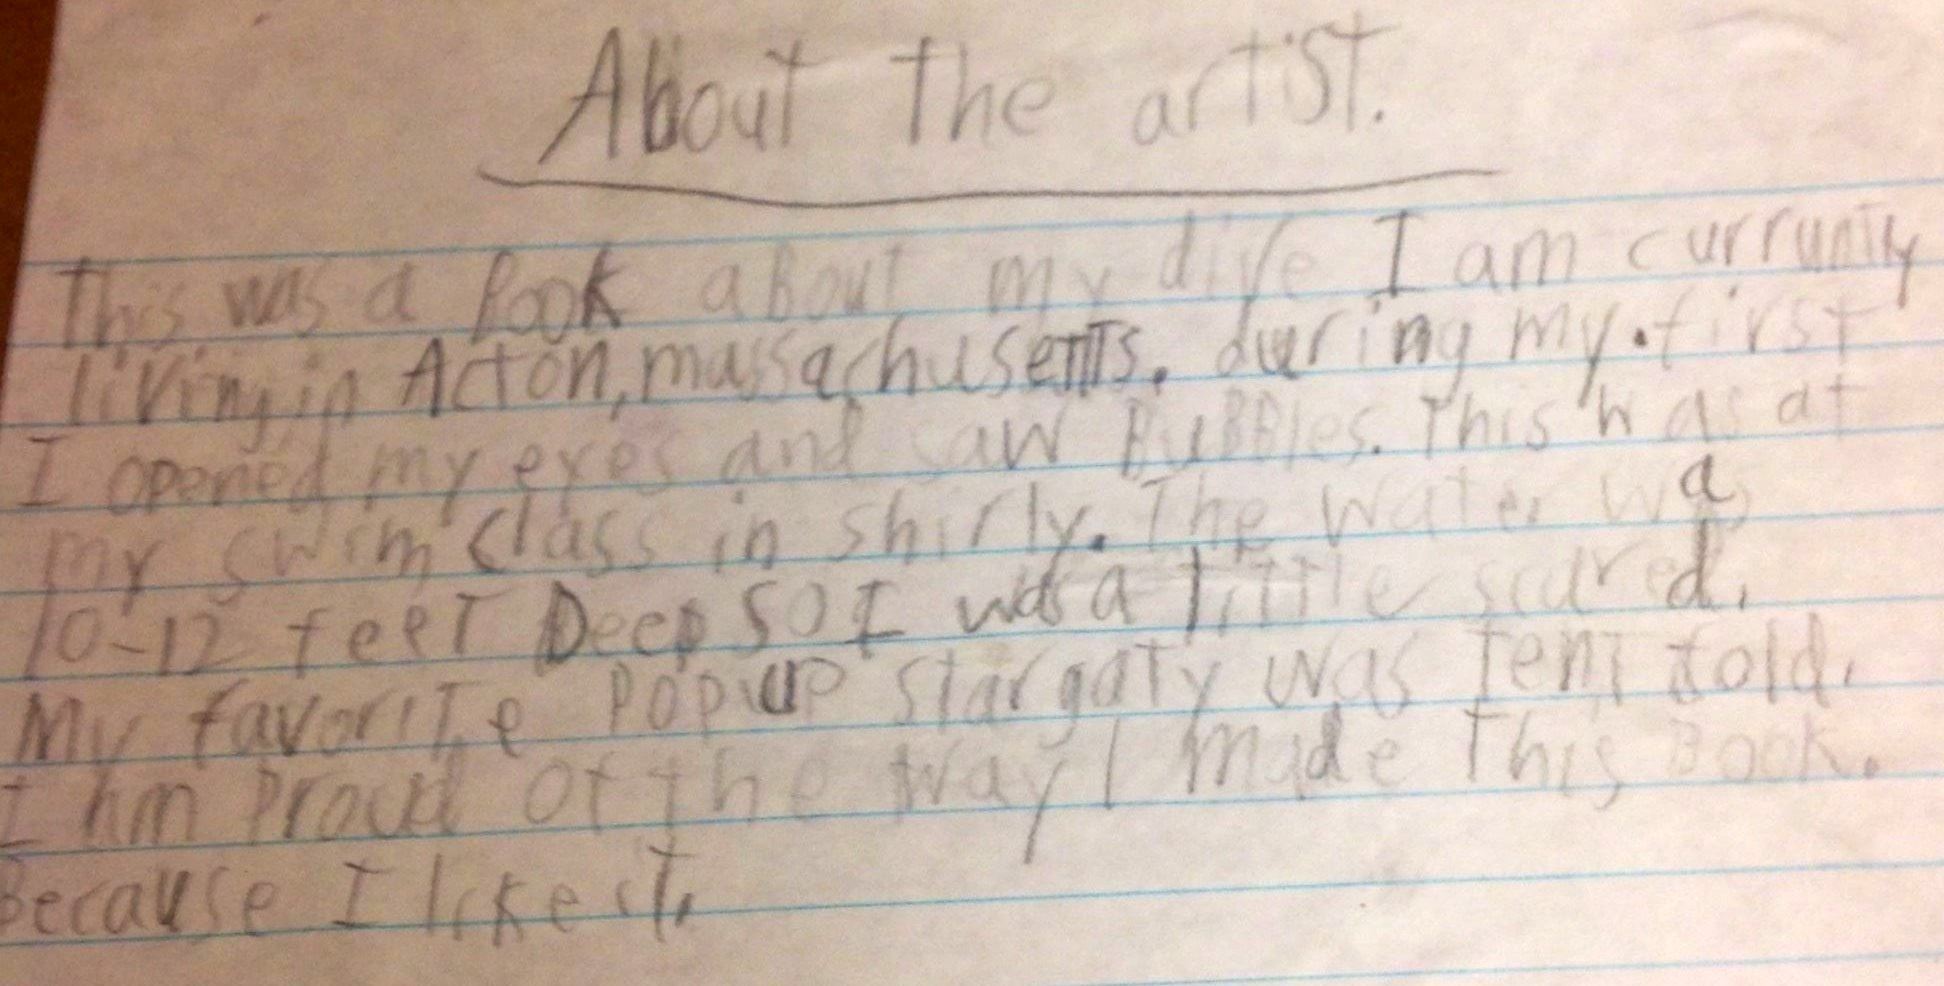 About the artist.
This was a Book about my dive I am curruntly
living in Acton, massachusetts. during my first
I opened my eyes and saw BuBBles. This was at
my swim class in shirly. The water was
10-12 feet Deep so I was a little scared.
My favorite Popup stargaty was tent fold.
I am Proud of the way I made This Book.
Because I like it.